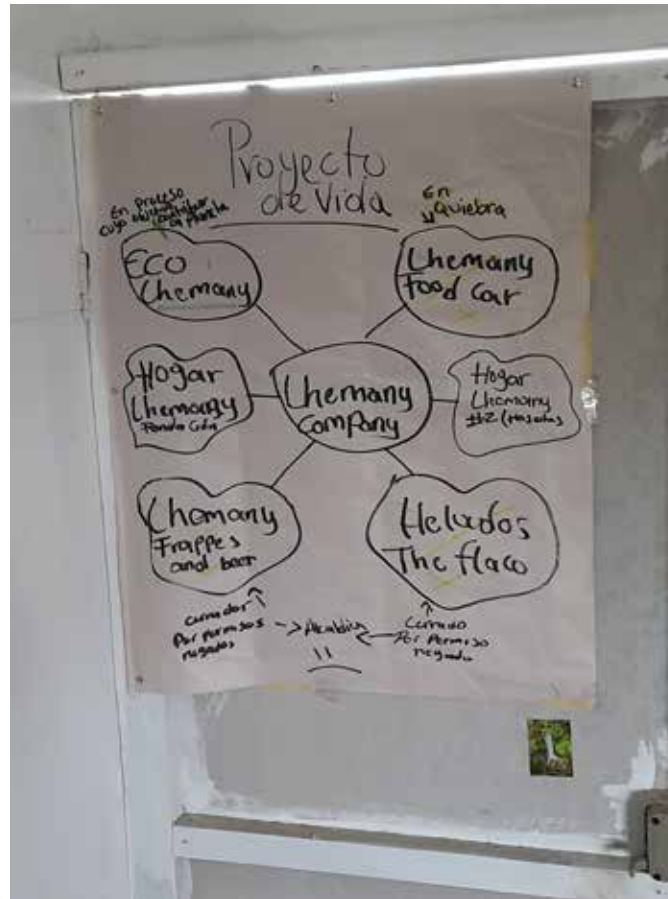 Proyecto
de Vida
En proceso
cuyo
contribuir
al planeta
En
Quiebra
ECO
Chemany
Lhemany
Food Car
Hogar
Lhemany
Fundación
Lhemany
Company
Hogar
Lhemany
#2 (Mascotas
Chemany
Frappes
and beer
Helados
The flaco
cerrados
Por permisos
negados
Alcaldia
Cerrado
Por Permiso
negado